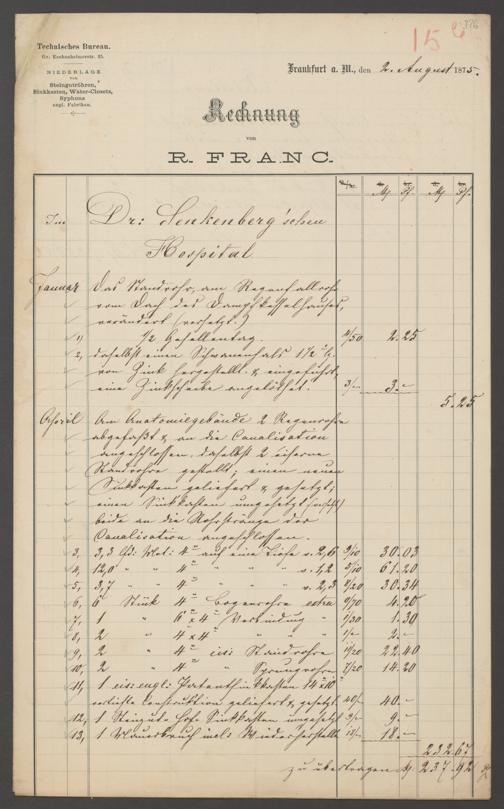 376
156
Technisches Bureau.
Gr. Eschenheimerstr. 35.
NIEDERLAGE
von
Steingutröhren,
Sinkkasten, Water-Closets,
Syphons
engl. Fabriken.
Frankfurt a. M., den 2. August 1875.
Rechnung
von
R. FRANC.
M Pf. M Pf.
Im Dr: Senkenberg'schen
Hospital
Januar Das Standrohr, am Regenfallrohr
vom Dach des Dampfkesselhauses,
verändert (versetzt.)
1, 1/2 Gesellentag. 4/50 2.25
2, daselbst einen Schwanenhals 1 1/2
von Zink hergestellt & eingeführt,
eine Zinkscheibe angelöthet. 3/- 3.-
5.25
April Am Anatomiegebäude 2 Regenrohre
abgefaßt & an die Canalisation
angeschlossen, daselbst 2 eiserne
Standrohre gestellt; einen neuen
Sinkkasten geliefert & gesetzt;
einen Sinkkasten umgesetzt
beide an die Rohrstränge der
Canalisation angeschlossen.
3, 3,3 4" auf eine Tiefe v. 2,6 9/10 30.03
4, 12,0 " " 4" " " " v. 1,2 5/10 61.20
5, 3,7 " " 4" " " " v. 2,3 8/20 30.34
6, 6 Stück 4" Bogenrohre extra 0/70 4.20
7, 1 " 6 x 4" Verbindung " 1/30 1.30
8, 2 " 4 x 4" " " 1/- 2.-
9, 2 " 4" eis: Standrohre 11/20 22.40
10, 2 " 4" " Sprungrohre 7/10 14.20
11, 1 eis: engl: Patentsinkkasten 14 x 10"
Construktion geliefert & gesetzt 40/- 40.-
12, 1 Steingut Hof Sinkkasten umgesetzt 9/- 9.-
13, 1 Mauerdurchbruch Wiederherstellt 18/- 18.-
232.67
zu übertragen M. 237.92